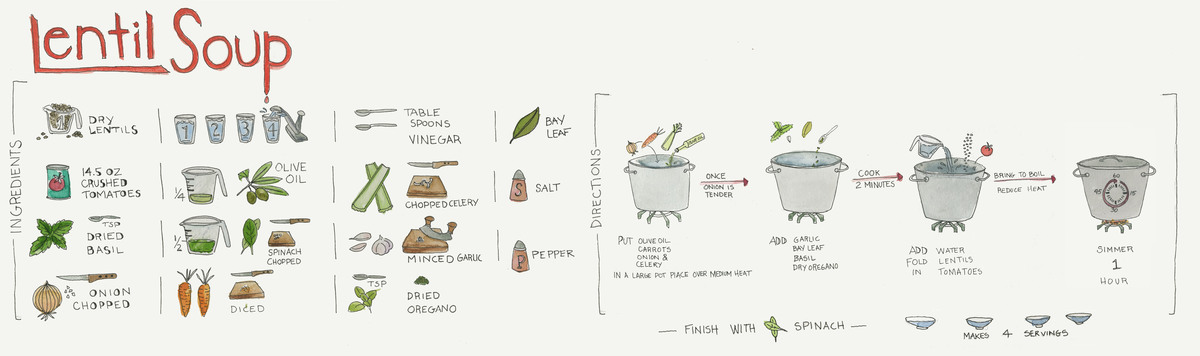 Lentil Soup
INGREDIENTS
1
DRY
LENTILS
14.5 OZ
CRUSHED
TOMATOES
TSP
DRIED
BASIL
ONION
CHOPPED
1 2 3 4
1/4
OLIVE
OIL
1/2
SPINACH
CHOPPED
DICED
TABLE
SPOONS
VINEGAR
CHOPPED CELERY
MINCED GARLIC
TSP
DRIED
OREGANO
BAY
LEAF
S
SALT
P
PEPPER
DIRECTIONS
PUT OLIVE OIL
CARROTS
ONION &
CELERY
IN A LARGE POT PLACE OVER MEDIUM HEAT
ONCE
ONION IS
TENDER
ADD GARLIC
BAY LEAF
BASIL
DRY OREGANO
COOK
2 MINUTES
ADD WATER
FOLD LENTILS
IN TOMATOES
BRING TO BOIL
REDUCE HEAT
60
45 15
30
SIMMER
1
HOUR
— FINISH WITH SPINACH —
MAKES 4 SERVINGS